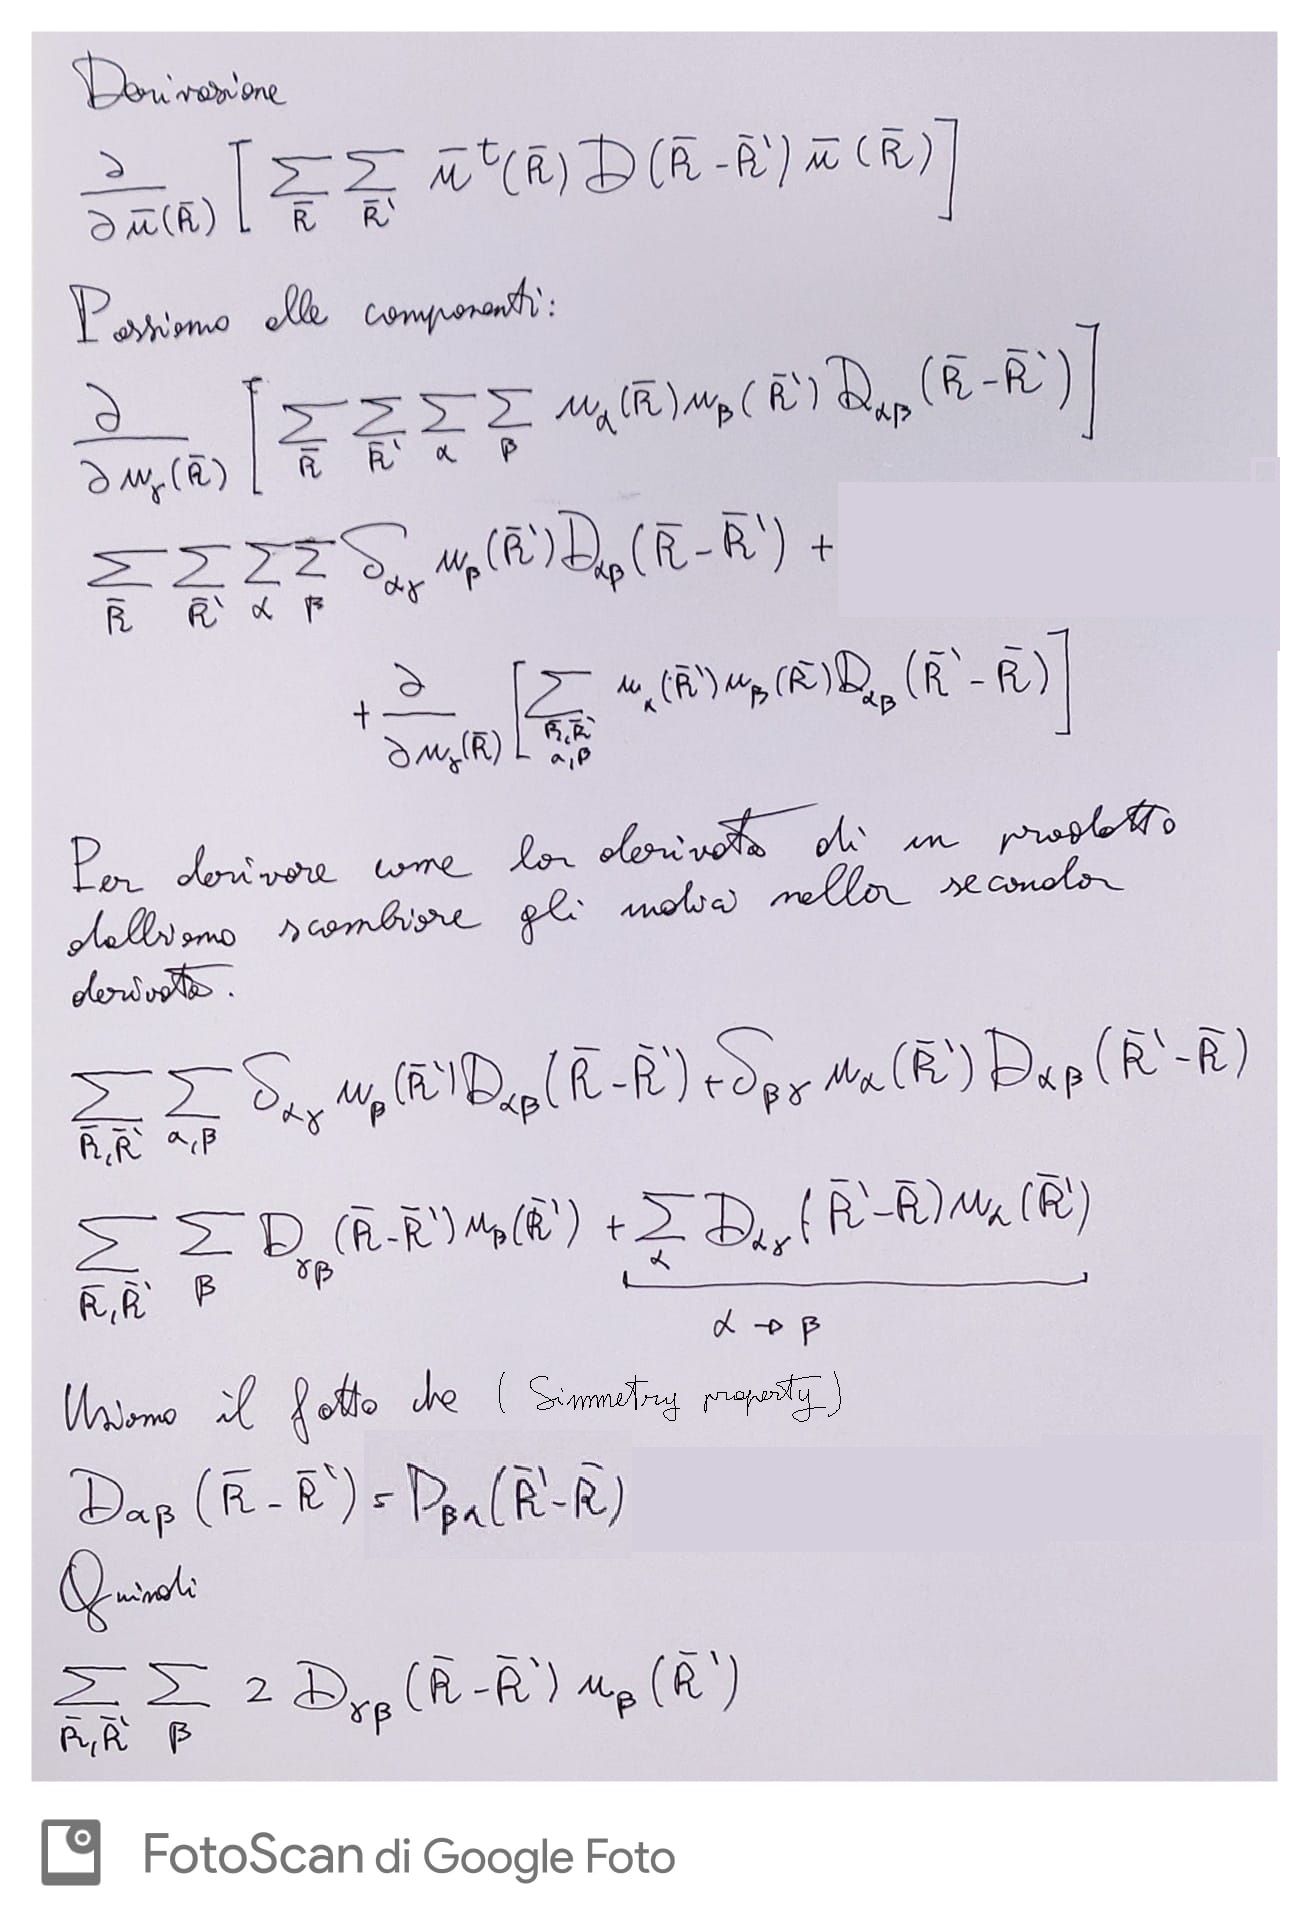 Derivazione
∂/∂ū(R̄) [ Σ_R̄ Σ_R̄' ū^t(R̄) D(R̄-R̄') ū(R̄) ]
Passiamo alle componenti:
∂/∂u_γ(R̄) [ Σ_R̄ Σ_R̄' Σ_α Σ_β u_α(R̄) u_β(R̄') D_αβ(R̄-R̄') ]
Σ_R̄ Σ_R̄' Σ_α Σ_β δ_αγ u_β(R̄') D_αβ(R̄-R̄') +
+ ∂/∂u_γ(R̄) [ Σ_R̄,R̄' α,β u_α(R̄') u_β(R̄) D_αβ(R̄'-R̄) ]
Per derivare come la derivata di un prodotto
dobbiamo scambiare gli indici nella seconda
derivata.
Σ_R̄,R̄' Σ_α,β δ_αγ u_β(R̄') D_αβ(R̄-R̄') + δ_βγ u_α(R̄') D_αβ(R̄'-R̄)
Σ_R̄,R̄' Σ_β D_γβ(R̄-R̄') u_β(R̄') + Σ_α D_αγ(R̄'-R̄) u_α(R̄')
α → β
Usiamo il fatto che (Simmetry property)
D_αβ(R̄-R̄') = D_βα(R̄'-R̄)
Quindi
Σ_R̄,R̄' Σ_β 2 D_γβ(R̄-R̄') u_β(R̄')
FotoScan di Google Foto